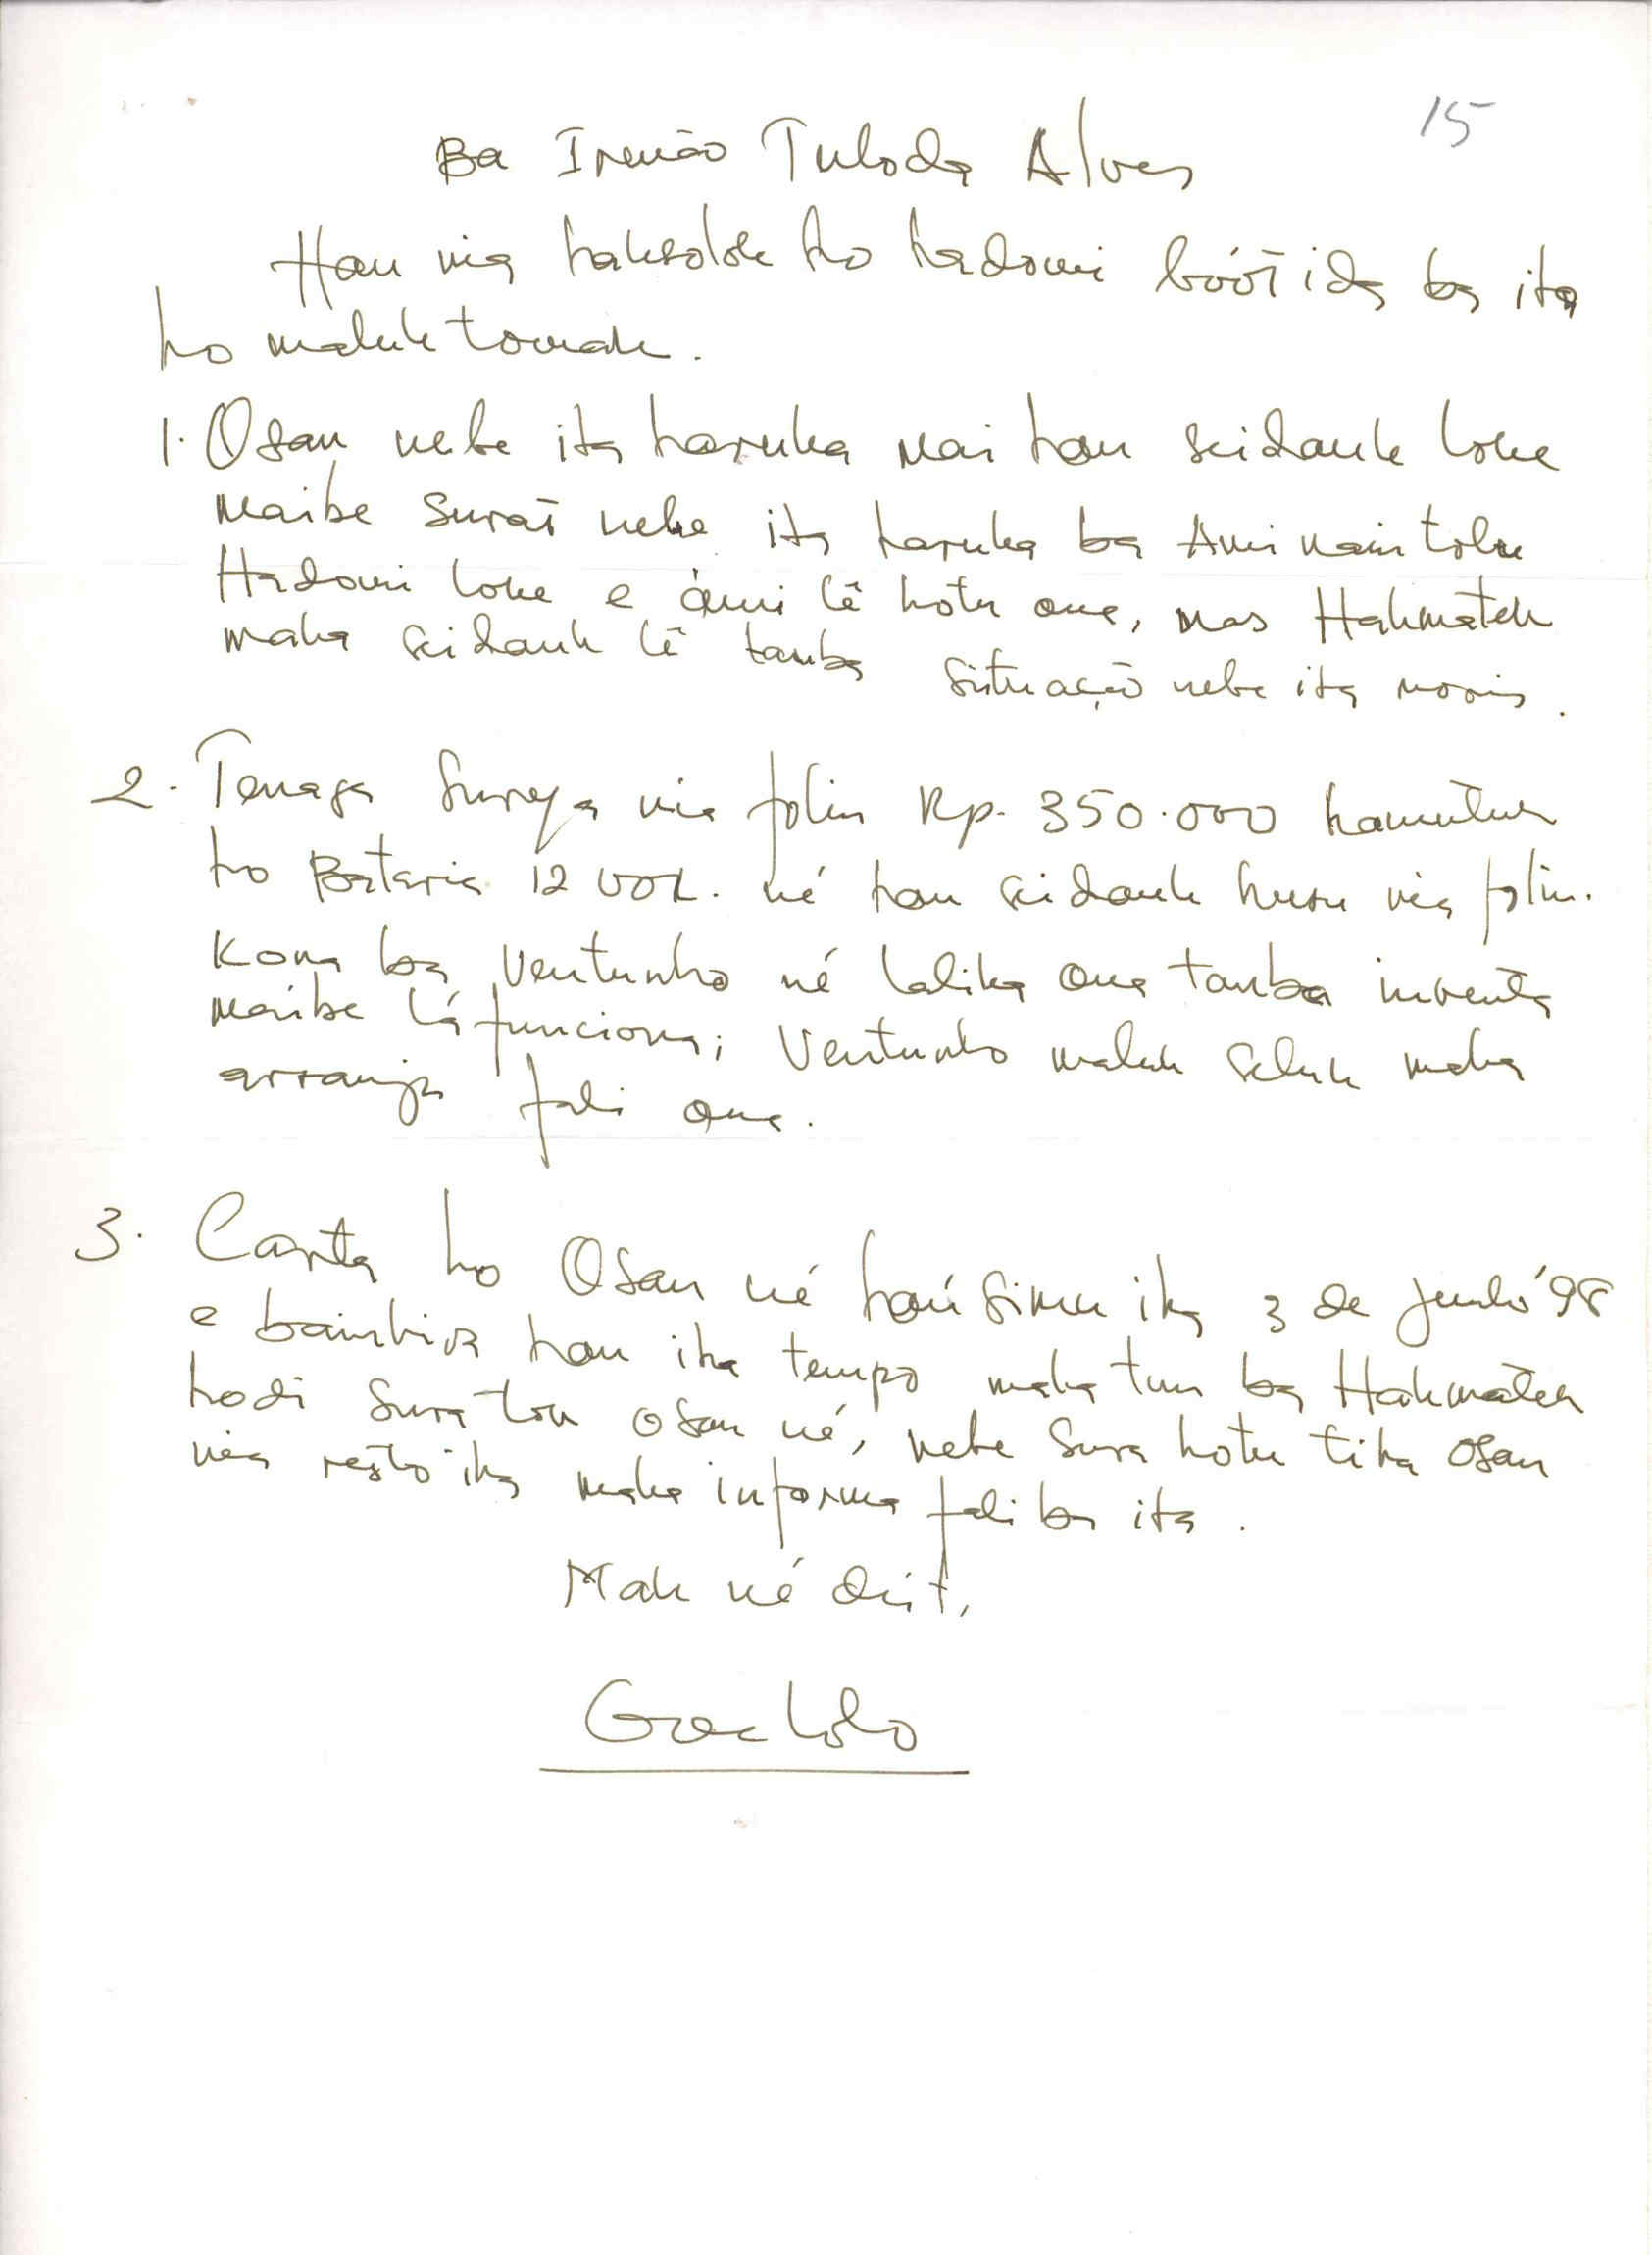 15
Ba Irmão Tuloda Alves
Hau nia haksolok ho hadomi bóót ida ba ita
ho maluk tomak.
1. Osan nebe ita haruka mai hau seidauk loke
maibe surat nebe ita haruka ba Ami nain tolu
Hadomi loke e ámi lê hotu ona, mas Hakmatek
maka seidauk lê tanba situação nebe ita moris.
2. Tenaga Surya nia folin Rp. 350.000 hamutuk
ho Bataria 12 vol. né hau seidauk husu nia folin.
Kona ba Venturinho né lalika ona tanba inventa
maibe lá funciona; maluk seluk maka
arranja fali ona.
3. Carta ho Osan né haú simu iha 3 de Junho '98
e bainhira hau iha tempo maka tun ba Hakmatek
hodi sura tok osan né, nebe sura hotu tiha osan
nia resto iha maka informa fali ba ita.
Mak né deit,